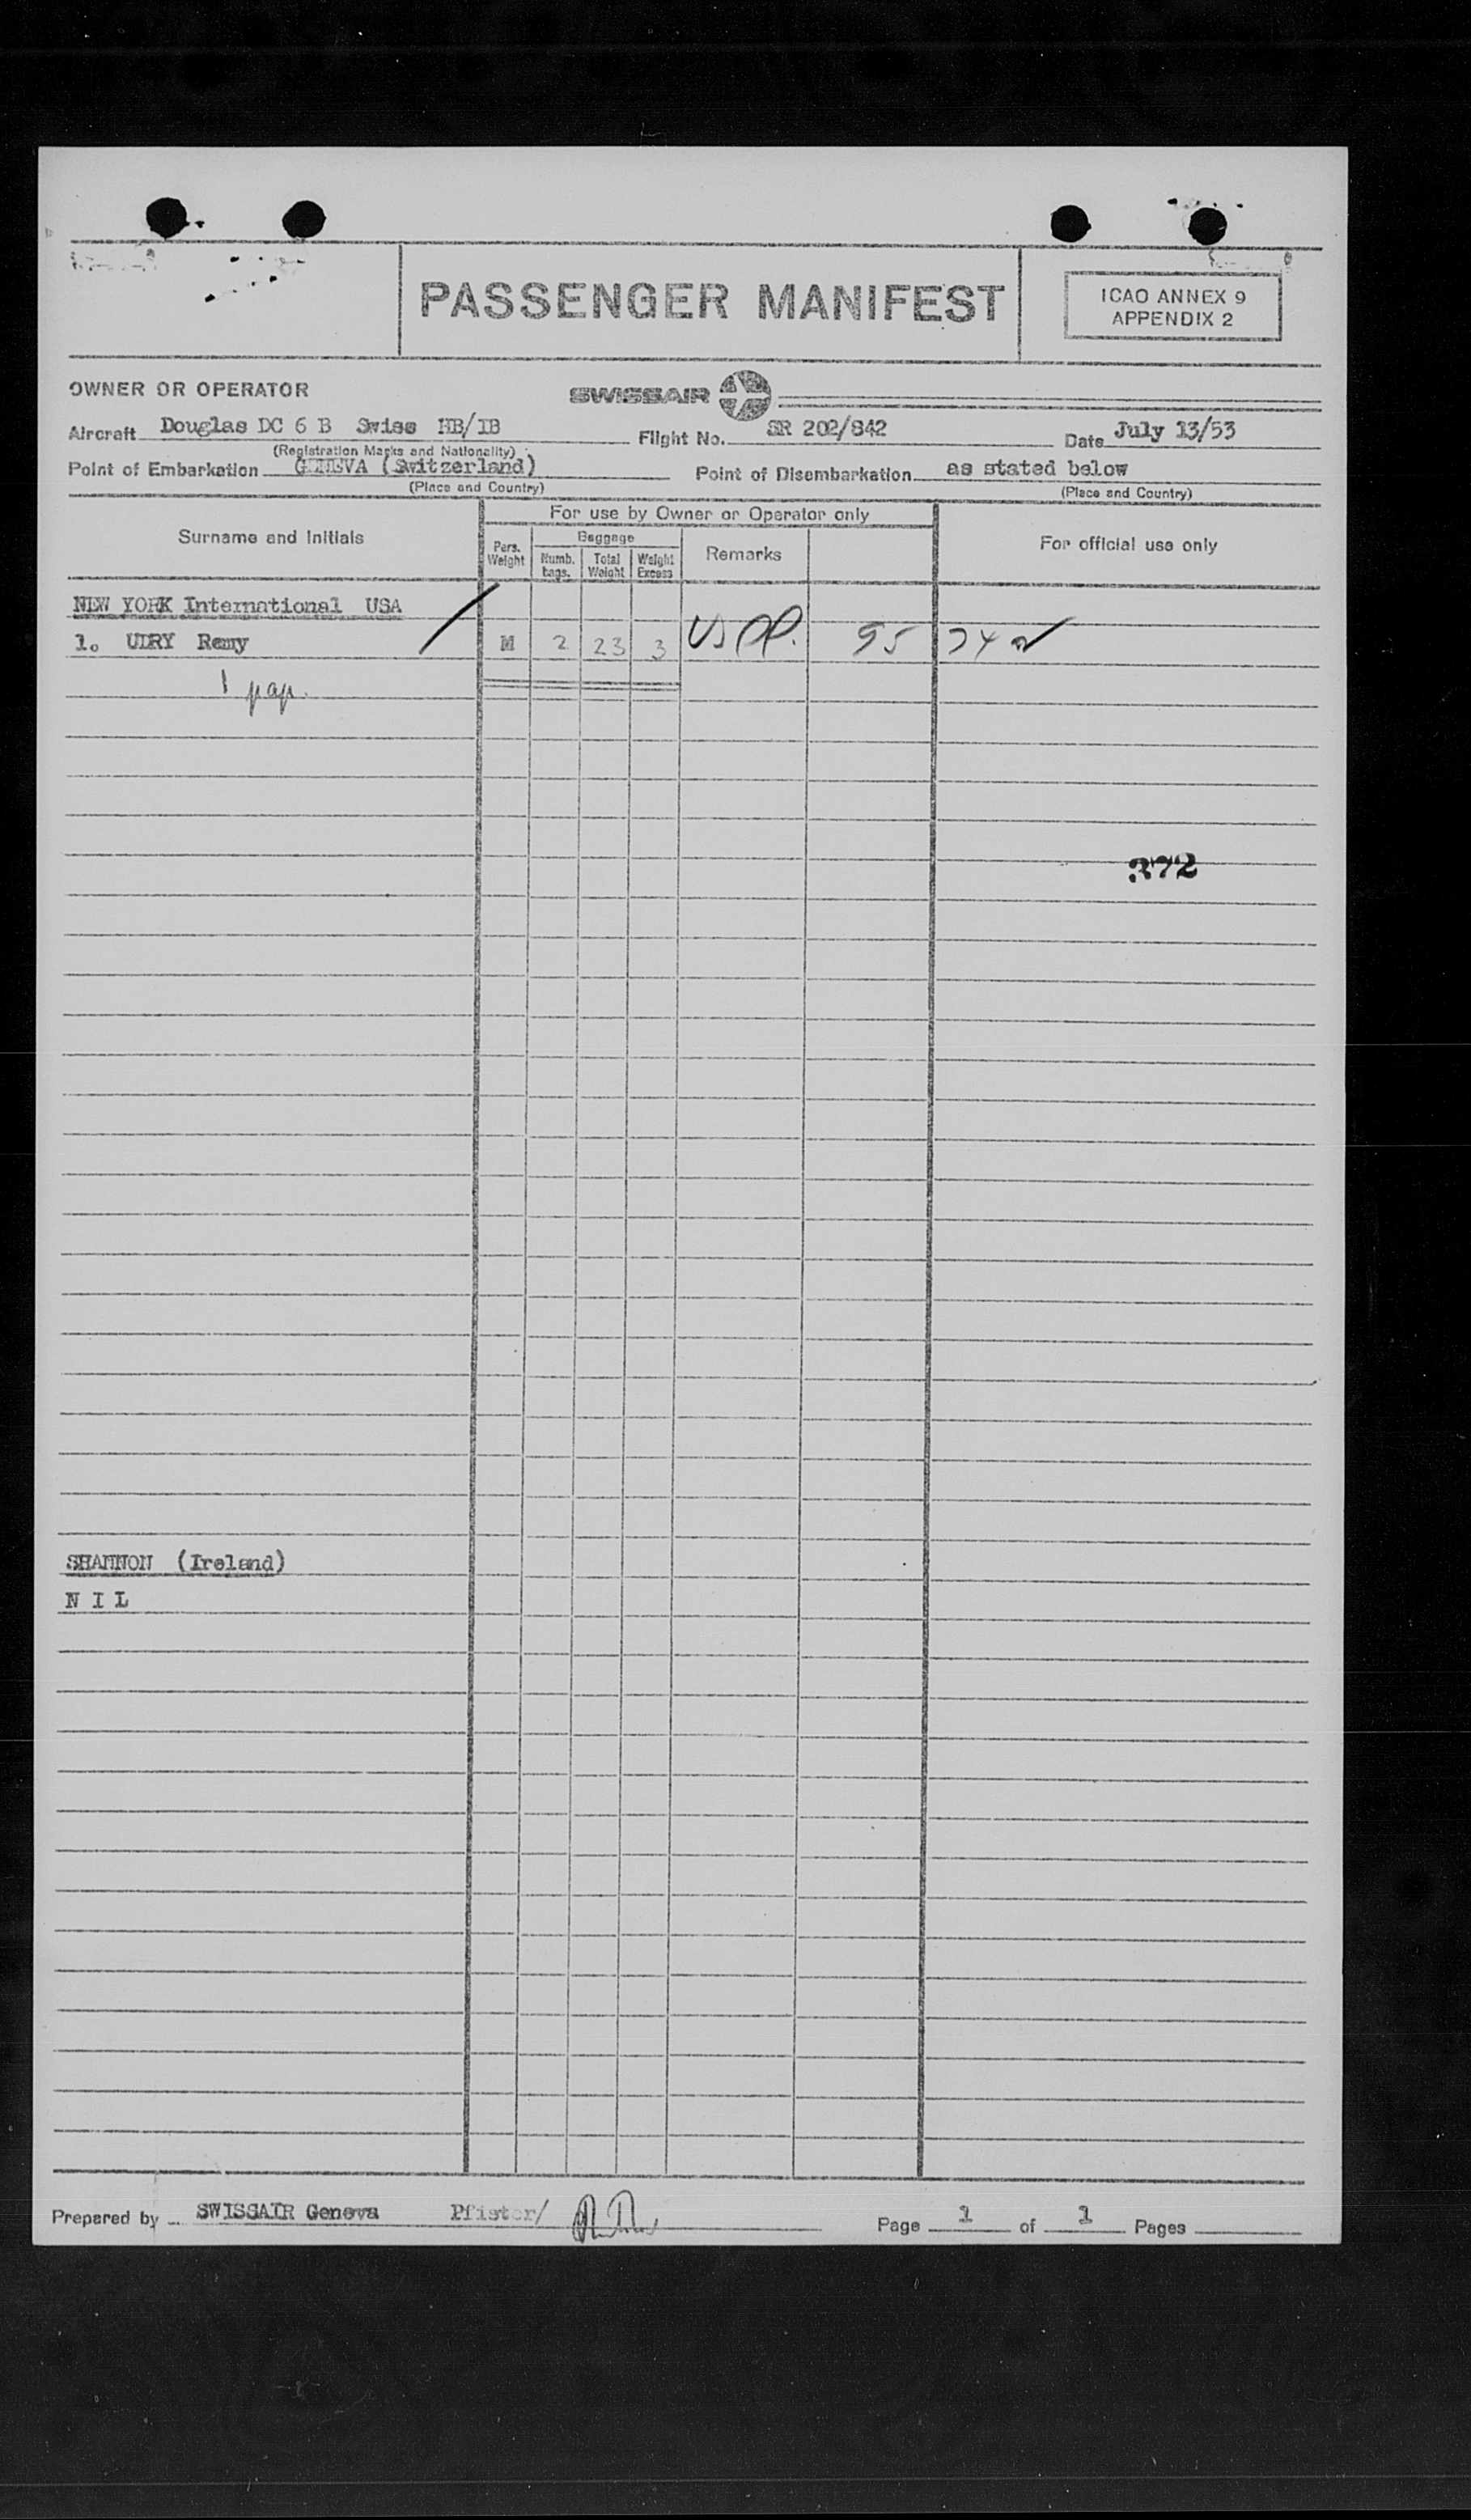 PASSENGER MANIFEST
ICAO ANNEX 9
APPENDIX 2
OWNER OR OPERATOR SWISSAIR
Aircraft Douglas DC 6 B Swiss HB/IB Flight No. SR 202/842 Date July 13/53
(Registration Marks and Nationality)
Point of Embarkation GENEVA (Switzerland) Point of Disembarkation as stated below
(Place and Country) (Place and Country)
Surname and Initials
For use by Owner or Operator only
Pers. Weight
Baggage
Numb. bags. Total Weight Weight Excess
Remarks
For official use only
NEW YORK International USA
1. UDRY Remy M 2 23 3 US PP. 55
1 pap.
372
SHANNON (Ireland)
N I L
Prepared by SWISSAIR Geneva Pfister/ Page 1 of 1 Pages